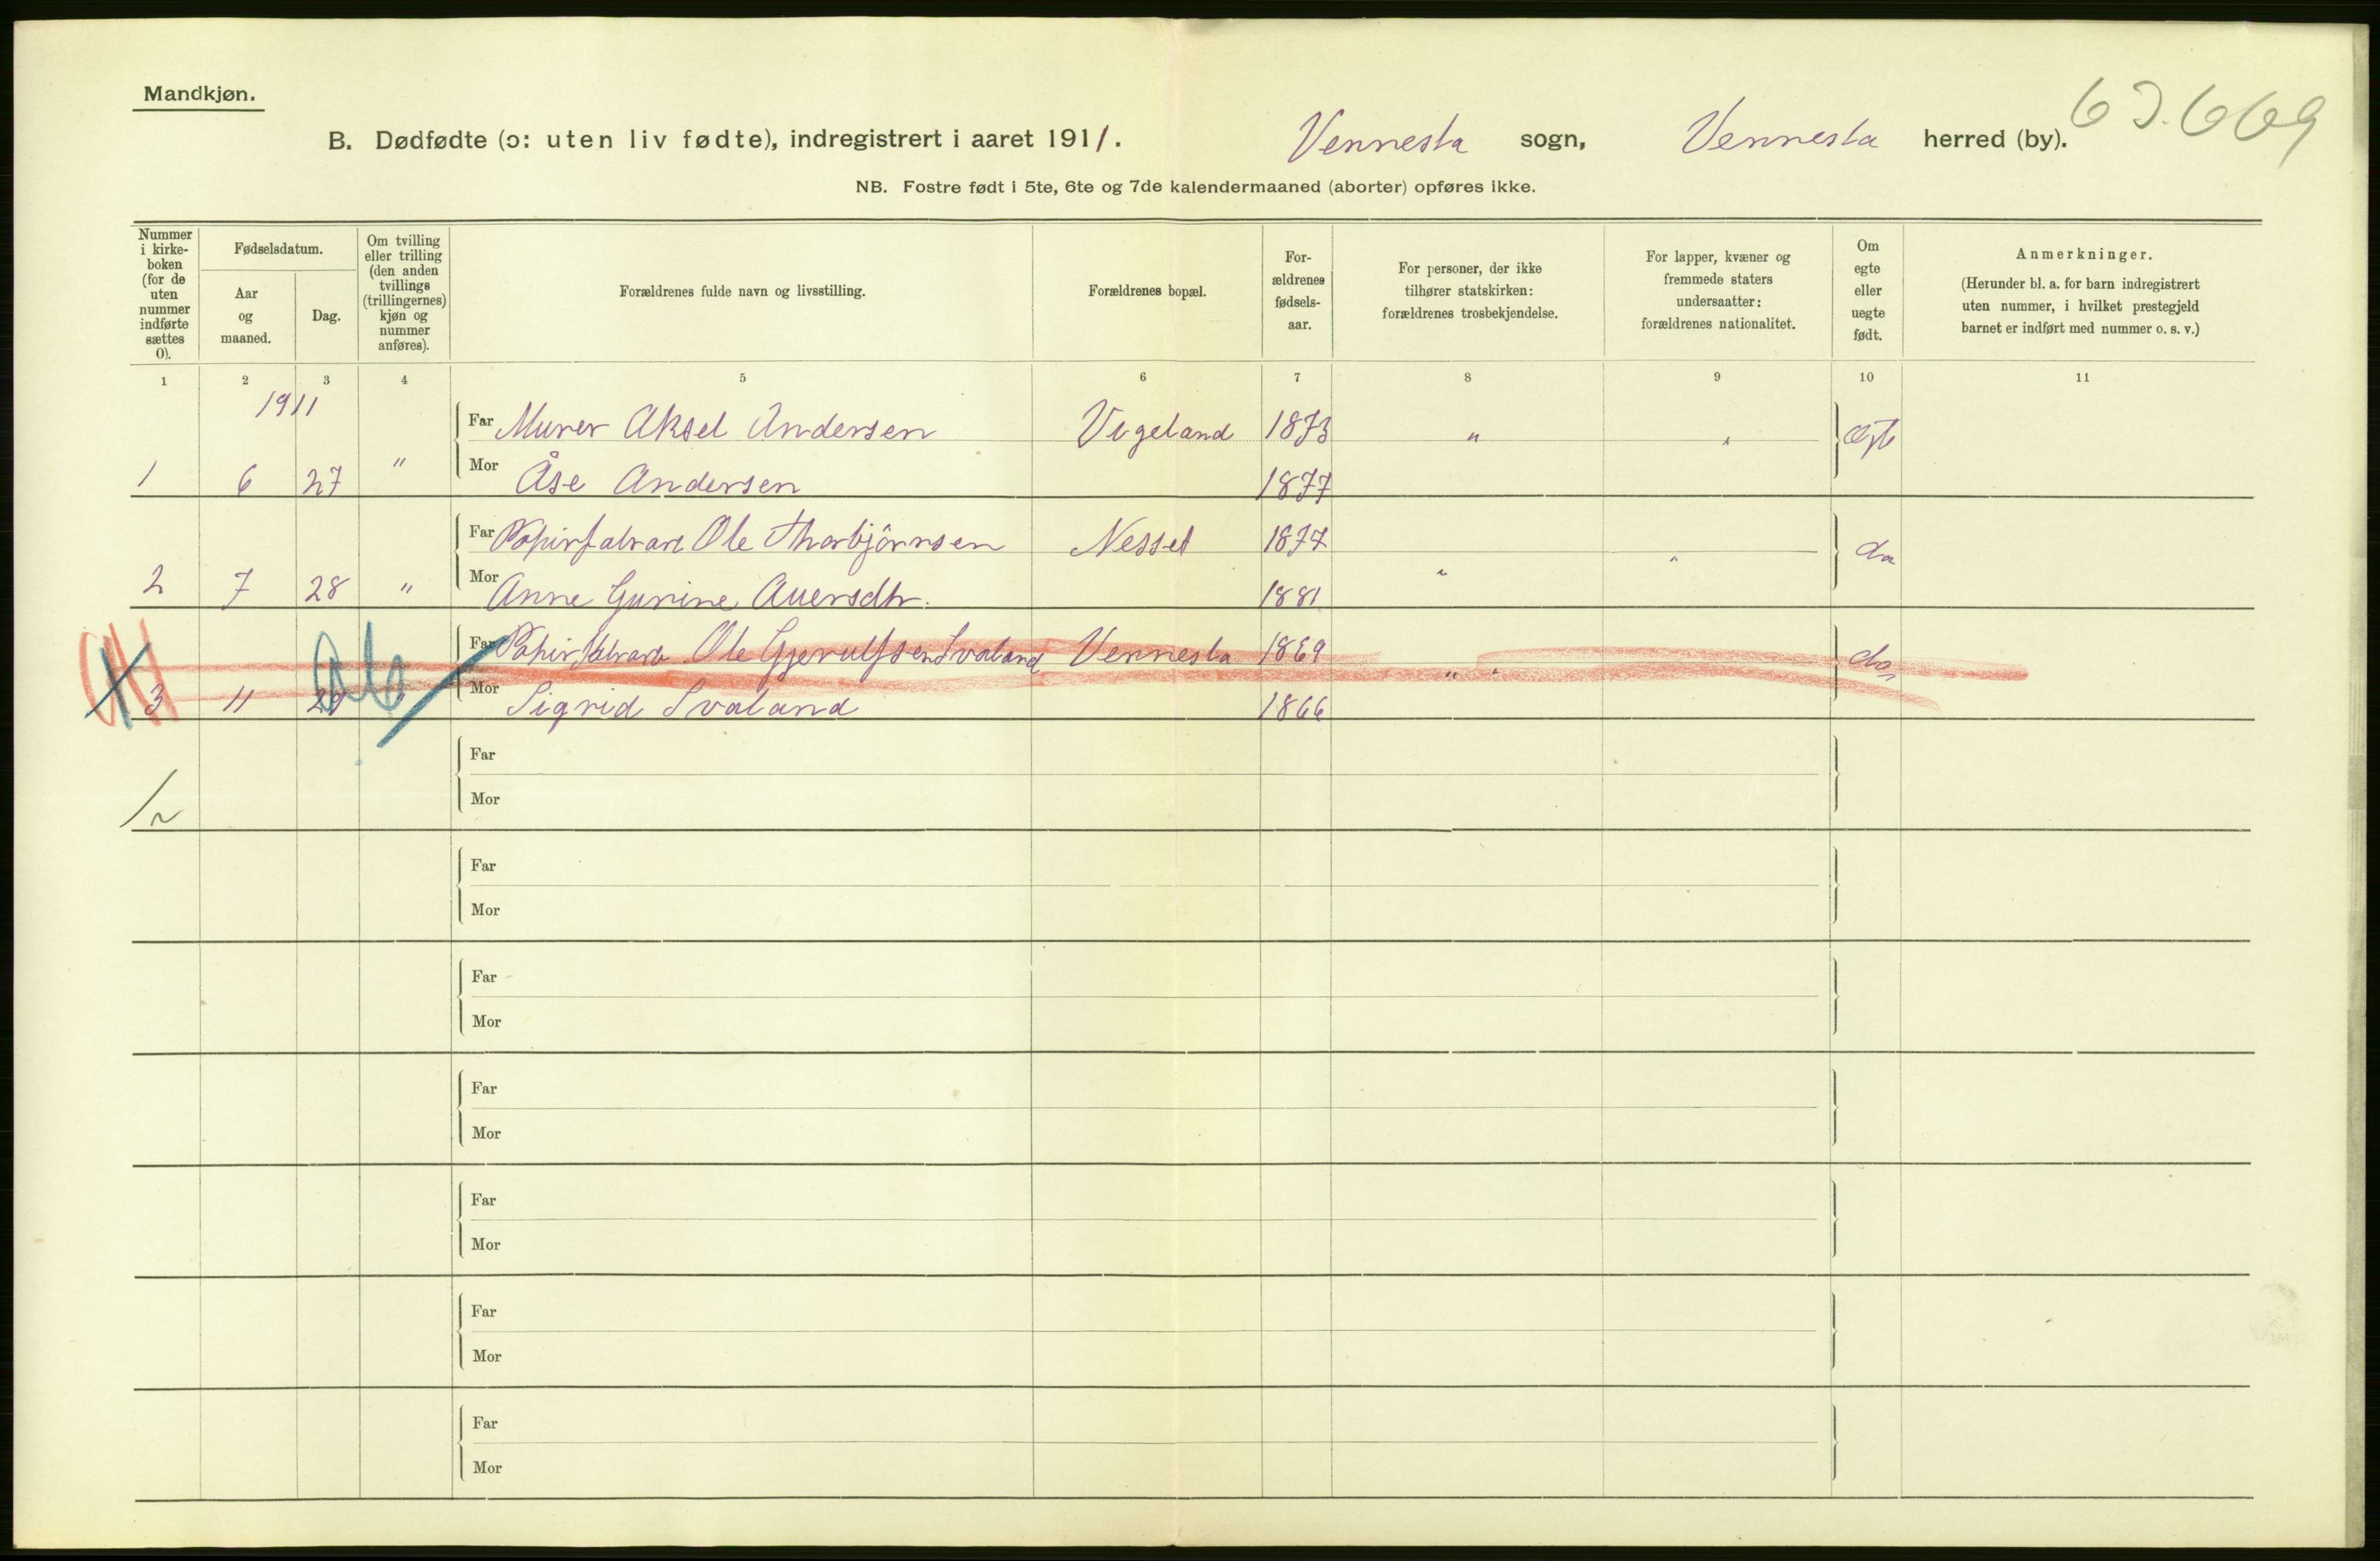 Mandkjøn.
B. Dødfødte (ɔ: uten liv fødte), indregistrert i aaret 1911. Vennesla sogn, Vennesla herred (by).
NB. Fostre født i 5te, 6te og 7de kalendermaaned (aborter) opføres ikke.
Nummer i kirke-
boken
(for de
uten
nummer
indførte
sættes
0).
Fødselsdatum.
Aar
og
maaned.
Dag.
Om tvilling
eller trilling
(den anden
tvillings
(trillingernes)
kjøn og
nummer
anføres).
Forældrenes fulde navn og livsstilling.
Forældrenes bopæl.
For-
ældrenes
fødsels-
aar.
For personer, der ikke
tilhører statskirken:
forældrenes trosbekjendelse.
For lapper, kvæner og
fremmede staters
undersaatter:
forældrenes nationalitet.
Om
egte
eller
uegte
født.
Anmerkninger.
(Herunder bl. a. for barn indregistrert
uten nummer, i hvilket prestegjeld
barnet er indført med nummer o. s. v.)
1 2 3 4 5 6 7 8 9 10 11
1911
Far Murer Aksel Andersen Vigeland 1873 " "
1 6 27 " Mor Åse Andersen 1877
Far Ole Thorbjörnsen Nesset 1877 do
2 7 28 " Mor Anne Gurine 1881 " "
Far Ole Gjerulfsen Svaland Vennesla 1869 do
3 11 Mor Sigrid Svaland 1866 " "
Far
Mor
Far
Mor
Far
Mor
Far
Mor
Far
Mor
Far
Mor
Far
Mor